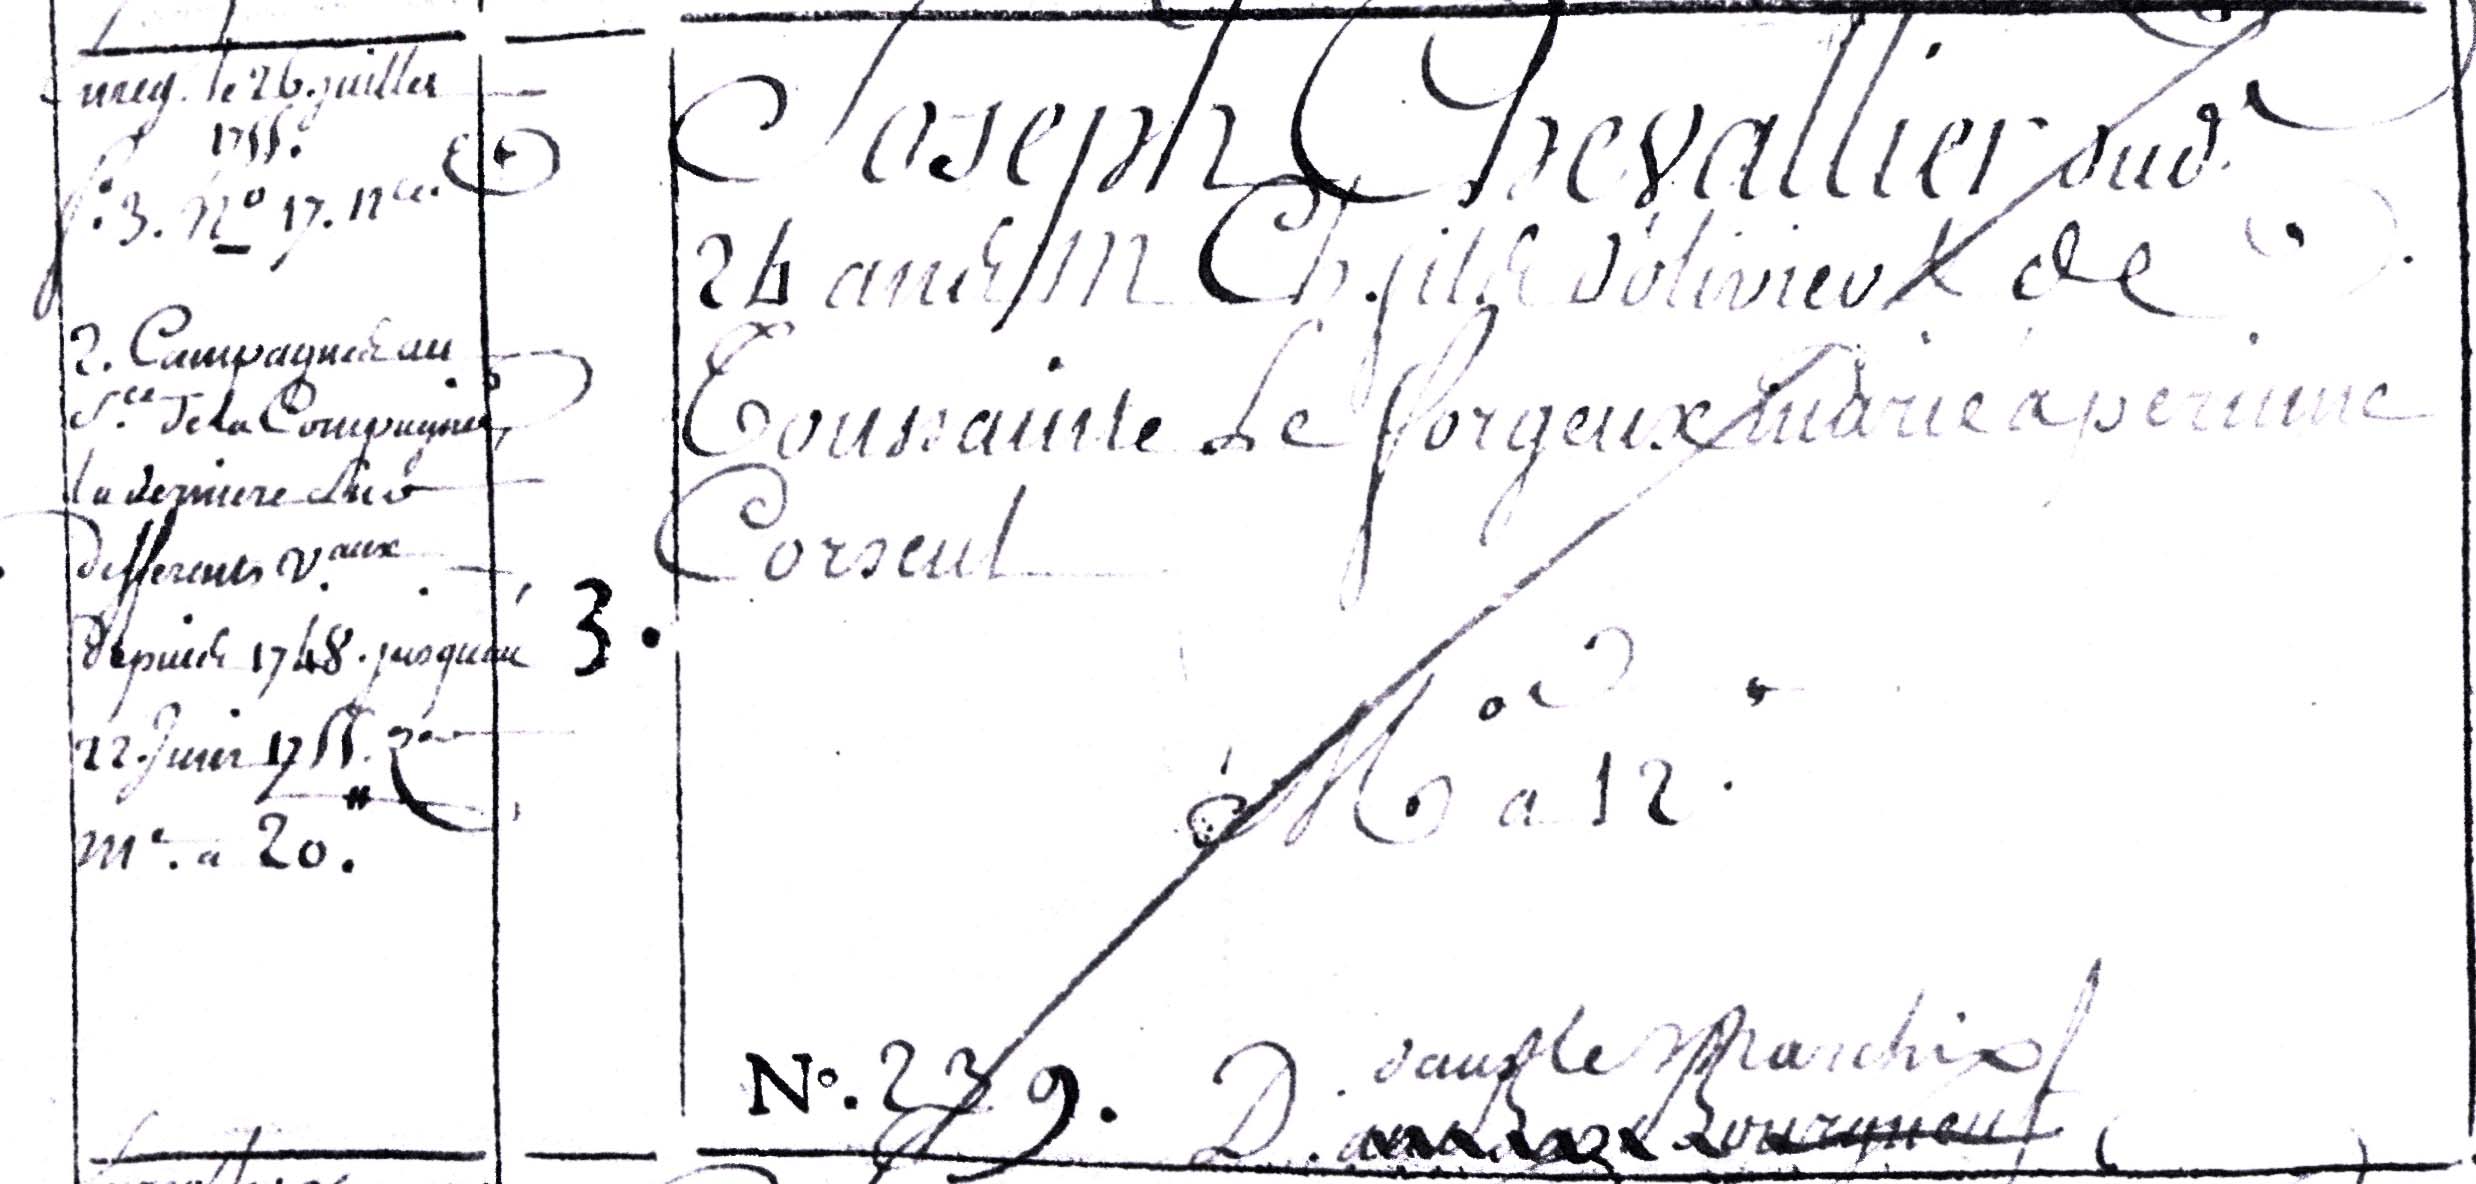 enreg. le 26. juillet
1755.
f.° 3. N° 17. nce.
2. Campagnes au
S.ce de la Compagnie
la derniere sur
differents v.aux
depuis 1748. jusqu'au
22. Juin 1755.
me. a 20."
3.
Joseph Chevallier dud.
26 ans M Ch. fils d'olivier & de
Toussainte Le forgeux marié a perinne
Corseul
M a 12.
N°. 239. D. dans le Marchix